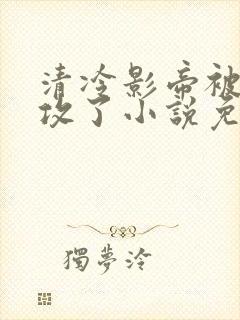 清冷影帝被
攻了小说免
獨夢泠